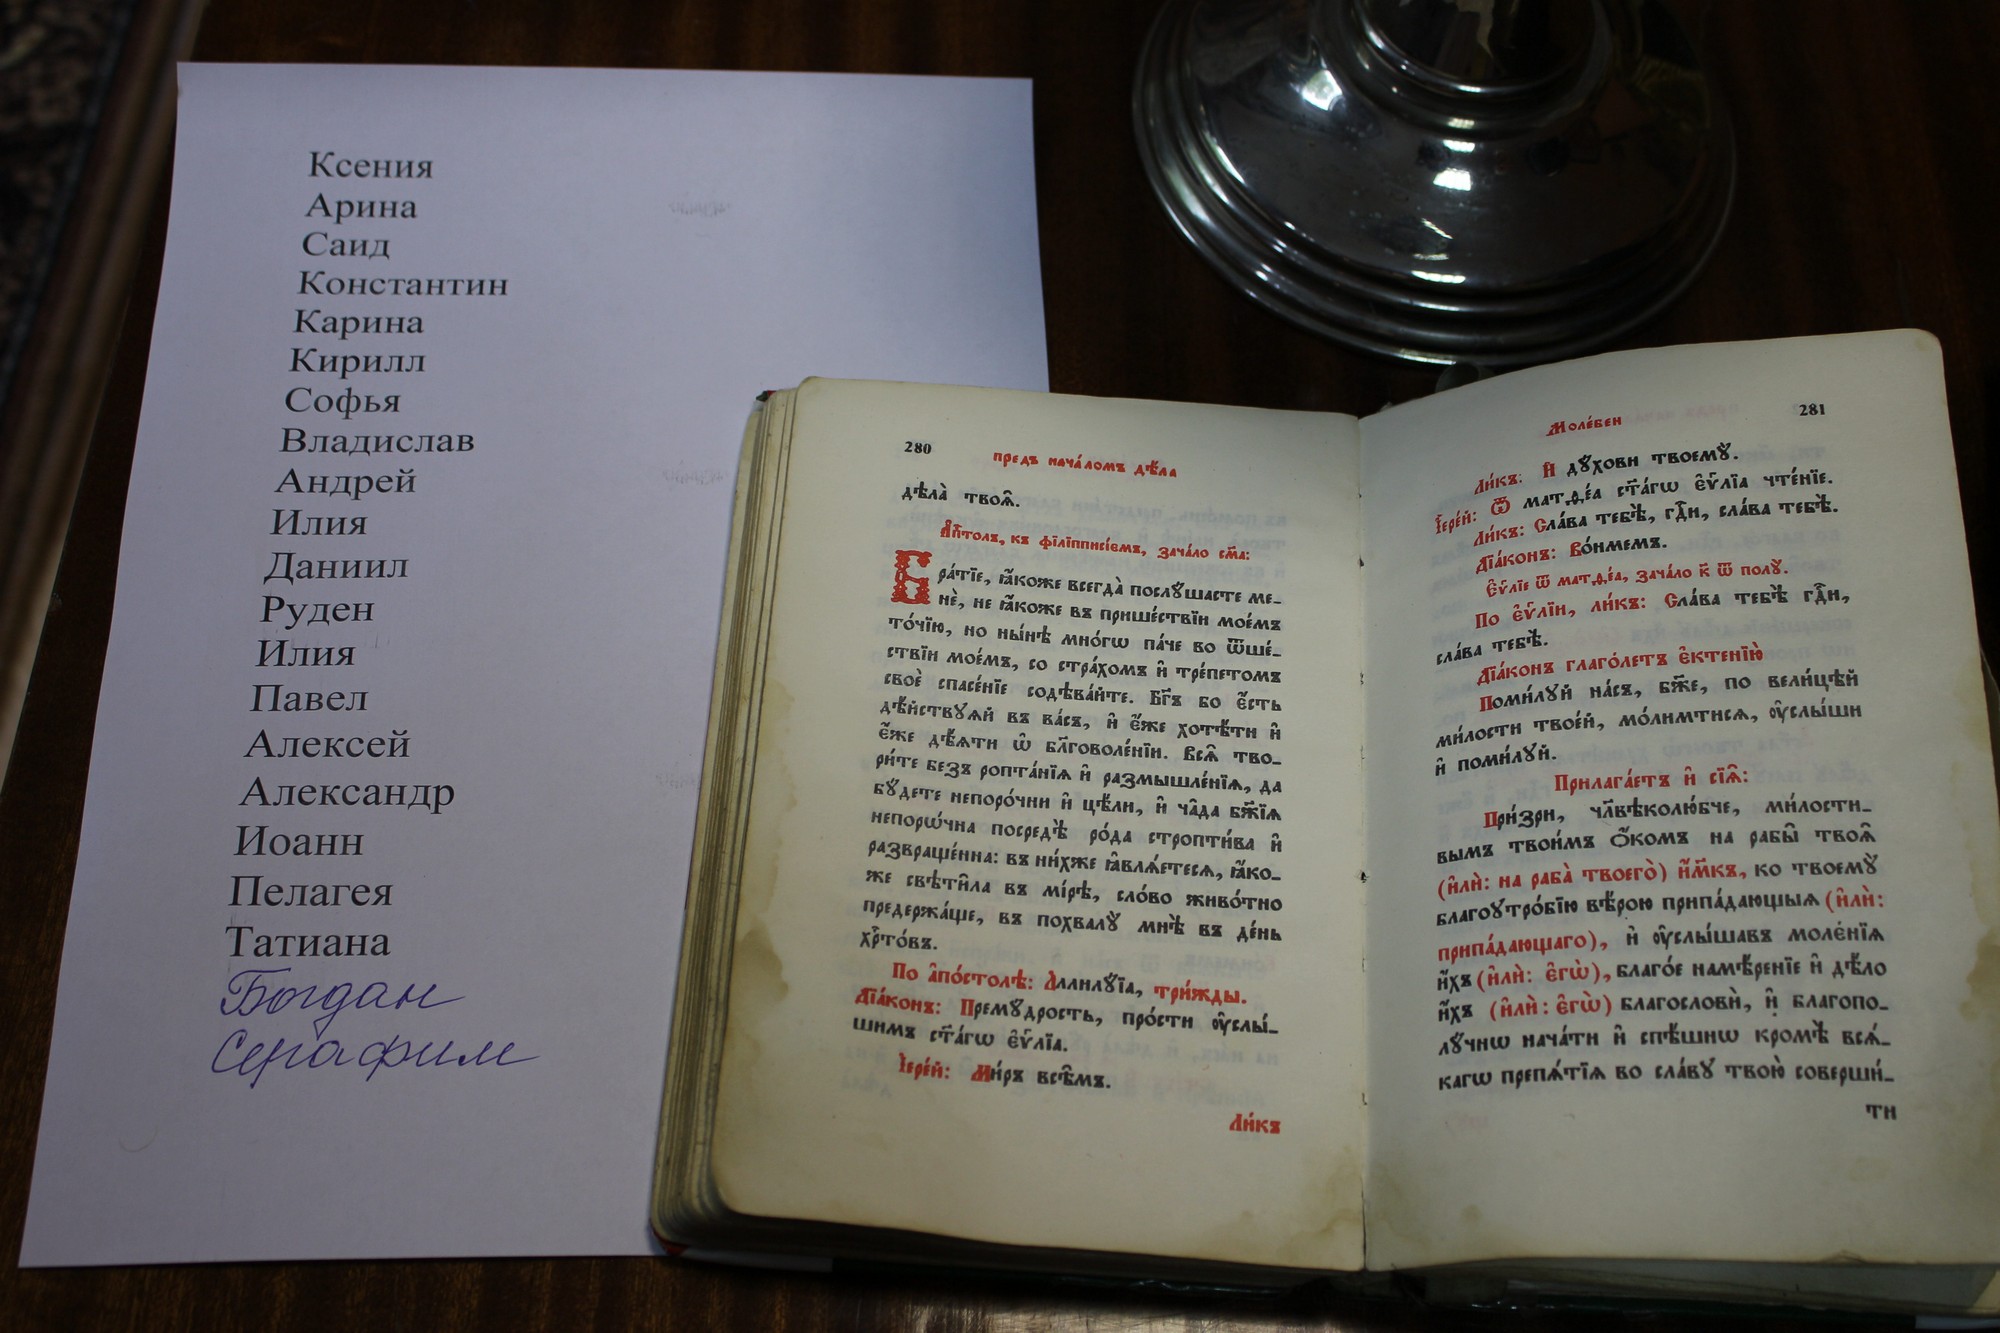 Ксения
Арина
Саид
Константин
Карина
Кирилл
Софья
Владислав
Андрей
Илия
Даниил
Руден
Илия
Павел
Алексей
Александр
Иоанн
Пелагея
Татиана
Богдан
Серафим
280
предъ нача́ломъ дѣ́ла
дѣла̀ твоѧ̑.
А҆п҇толъ, къ фїлїпписі́емъ, зача́ло см҃а:
Бра́тїе, ꙗ҆́коже всегда̀ послꙋ́шасте ме-
нѐ, не ꙗ҆́коже въ прише́ствїи мое́мъ
то́чїю, но ны́нѣ мно́гѡ па́че во ѿше́-
ствїи мое́мъ, со стра́хомъ и҆ тре́петомъ
своѐ спасе́нїе содѣ́вайте. Бг҃ъ бо є҆́сть
дѣ́йствꙋѧй въ ва́съ, и҆ є҆́же хотѣ́ти и҆
є҆́же дѣ́ѧти ѡ҆ бл҃говоле́нїи. Всѧ̑ тво-
ри́те без̾ ропта́нїѧ и҆ размышле́нїѧ, да
бꙋ́дете непоро́чни и҆ цѣ́ли, и҆ ча̑да бж҃їѧ
непорѡ́чна посредѣ̀ ро́да стропти́ва и҆
развраще́нна: въ ни́хже ꙗ҆влѧ́етесѧ, ꙗ҆́ко-
же свѣти̑ла въ мі́рѣ, сло́во живо́тно
предержа́ще, въ похвалꙋ̀ мнѣ̀ въ де́нь
хрⷭ҇то́въ.
По а҆по́столѣ: А҆ллилꙋ́їа, три́жды.
Дїа́конъ: Премꙋ́дрость, про́сти ᲂу҆слы́-
шимъ ст҃а́гѡ є҆ѵⷢ҇лїа.
І҆ере́й: Ми́ръ всѣ̑мъ.
Ли́къ
Моле́бен
281
Ли́къ: И҆ дꙋ́хови твоемꙋ̀.
І҆ере́й: Ѿ матѳе́а ст҃а́гѡ є҆ѵⷢ҇лїа чте́нїе.
Ли́къ: Сла́ва тебѣ̀, гдⷭ҇и, сла́ва тебѣ̀.
Дїа́конъ: Во́нмемъ.
Є҆ѵⷢ҇лїе ѿ матѳе́а, зача́ло к҃ ѿ полꙋ̀.
По є҆ѵⷢ҇лїи, ли́къ: Сла́ва тебѣ̀ гдⷭ҇и,
сла́ва тебѣ̀.
Дїа́конъ глаго́летъ є҆ктенїю̀
Поми́лꙋй на́съ, бж҃е, по вели́цѣй
ми́лости твое́й, мо́лимтисѧ, ᲂу҆слы́ши
и҆ поми́лꙋй.
Прилага́етъ и҆ сїѧ̑:
При́зри, чл҃вѣколю́бче, ми́лости-
вымъ твои́мъ ѻ҆́комъ на рабы̑ твоѧ̑
(и҆лѝ: на раба̀ твоего̀) и҆́м҃къ, ко твоемꙋ̀
благоꙋтро́бїю вѣ́рою припа́дающыѧ (и҆лѝ:
припа́дающаго), и҆ ᲂу҆слы́шавъ моле́нїѧ
и҆́хъ (и҆лѝ: є҆гѡ̀), благо́е намѣ́ренїе и҆ дѣ́ло
и҆́хъ (и҆лѝ: є҆гѡ̀) благословѝ, и҆ благопо-
лꙋ́чнѡ нача́ти и҆ спѣ́шнѡ кромѣ̀ всѧ́-
кагѡ препѧ́тїѧ во сла́вꙋ твою̀ соверши́-
ти